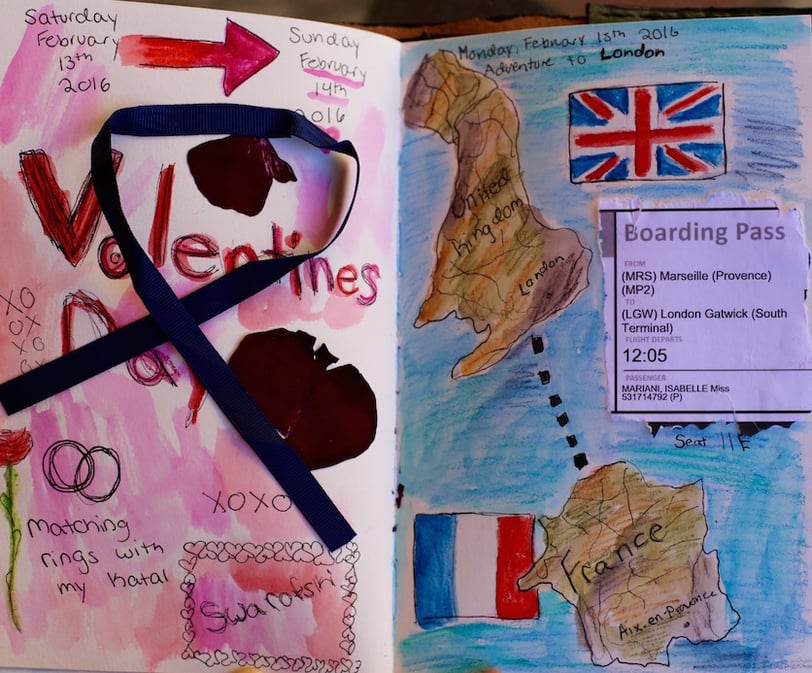 Saturday
February
13th
2016
Sunday
February
14th
2016
Valentines
Day
XO
OX
XO
OX
XOXO
Matching
rings with
my Katal
Swarofski
Monday, February 15th 2016
Adventure to London
United
Kingdom
London
Boarding Pass
FROM
(MRS) Marseille (Provence)
(MP2)
TO
(LGW) London Gatwick (South
Terminal)
FLIGHT DEPARTS
12:05
PASSENGER
MARIANI, ISABELLE Miss
531714792 (P)
Seat 11E
France
Aix-en-Provence